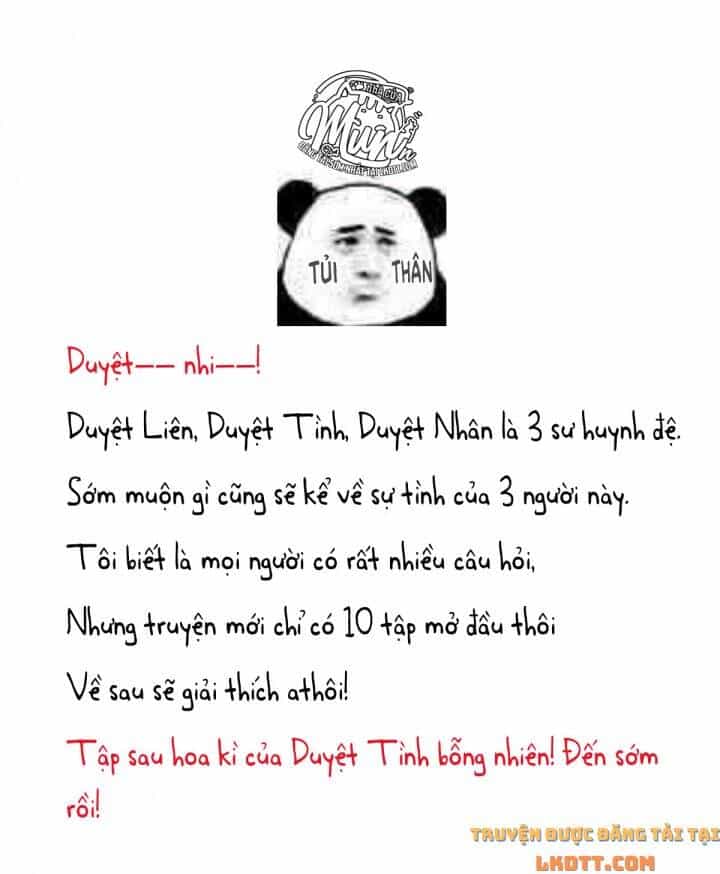 NHÀ CỦA
Mun
ĐĂNG TẢI SỚM NHẤT TẠI LKDTT.COM
TỦI THÂN
Duyệt—— nhi——!
Duyệt Liên, Duyệt Tình, Duyệt Nhân là 3 sư huynh đệ.
Sớm muộn gì cũng sẽ kể về sự tình của 3 người này.
Tôi biết là mọi người có rất nhiều câu hỏi,
Nhưng truyện mới chỉ có 10 tập mở đầu thôi
Về sau sẽ giải thích athôi!
Tập sau hoa kì của Duyệt Tình bỗng nhiên! Đến sớm
rồi!
TRUYỆN ĐƯỢC ĐĂNG TẢI TẠI
LKDTT.COM